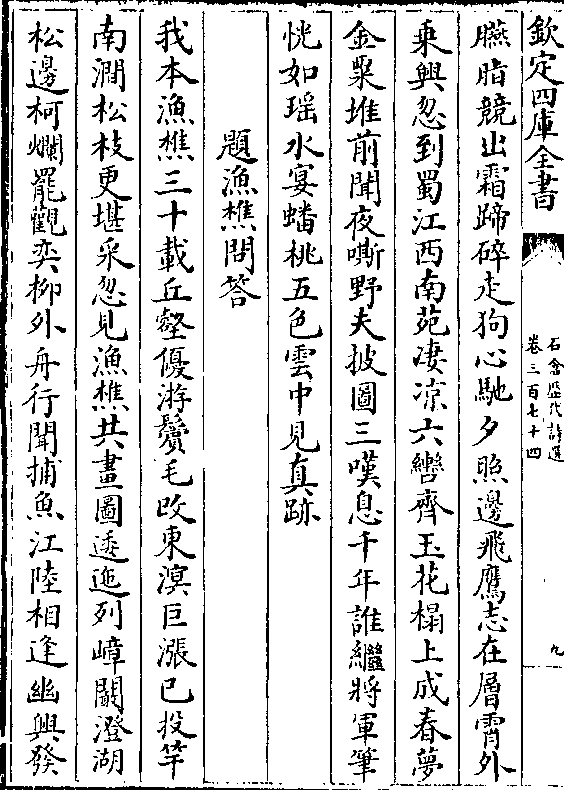 欽定四庫全書
石倉歷代詩選
卷三百七十四
九
臙脂競出霜蹄碎走狗心馳夕照邊飛鷹志在層霄外
乗興忽到蜀江西南苑凄凉六轡齊玉花榻上成春夢
金粟堆前聞夜嘶野夫披圖三嘆息千年誰繼將軍筆
恍如瑶水宴蟠桃五色雲中見真跡
題漁樵問答
我本漁樵三十載丘壑優游鬢毛改東溟巨漲已投竿
南澗松枝更堪采忽見漁樵共畫圖逶迤列嶂闢澄湖
松邊柯爛罷觀奕柳外舟行聞捕魚江陸相逢幽興發